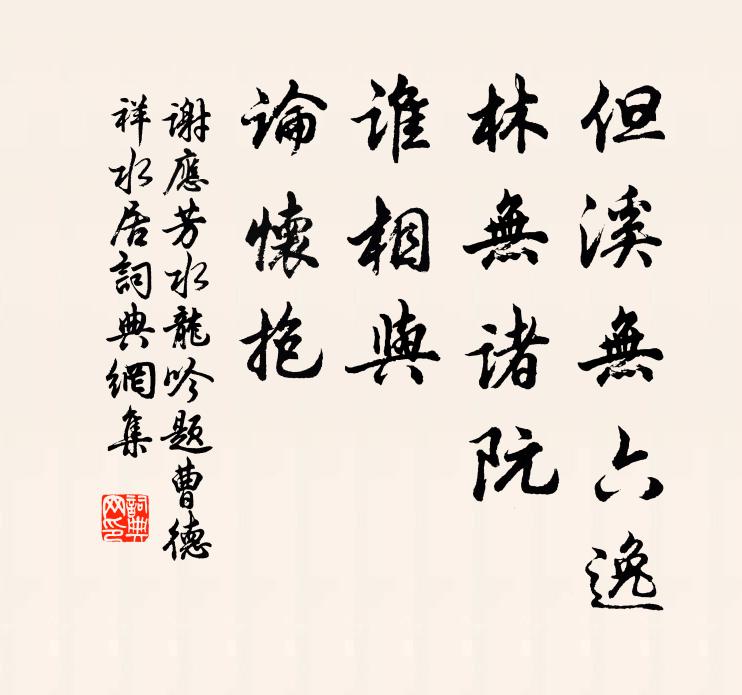 但溪無六逸
林無諸阮
誰相與
論懷抱
謝應芳水龍吟題曹德
祥水居詞典網集
詞典網印